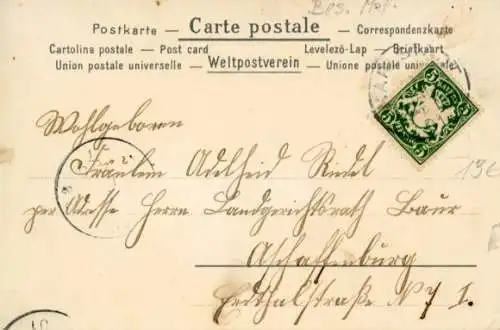 Postkarte — Carte postale — Correspondenzkarte
Cartolina postale — Post card Levelező-Lap — Briefkaart
Union postale universelle — Weltpostverein — Unione postale universale
5 5
5 5
Wohlgeboren
Fräulein Adelheid Riedel
per Adresse Herrn Landgerichtsrath Baur
Aschaffenburg
N 7 I.
13€